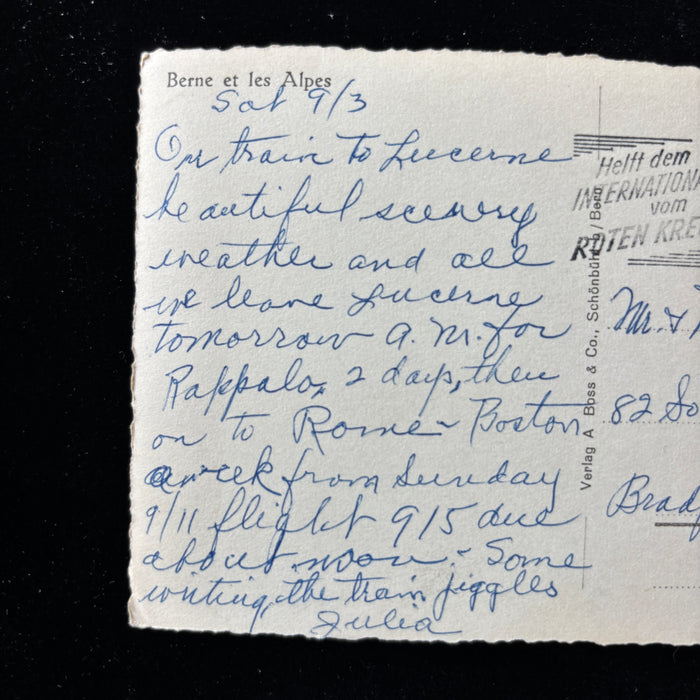 Berne et les Alpes
Sat 9/3
On train to Lucerne
beautiful scenery
weather and all
we leave Lucerne
tomorrow A.M. for
Rappalo, 2 days, then
on to Rome - Boston
a week from Sunday
9/11 flight 915 due
about noon - Some
writing, the train jiggles
Julia
Verlag A Boss & Co., Schönbühl / Bern
Helft dem
INTERNATION
vom
ROTEN KRE
Mr. &
82 So
Brad